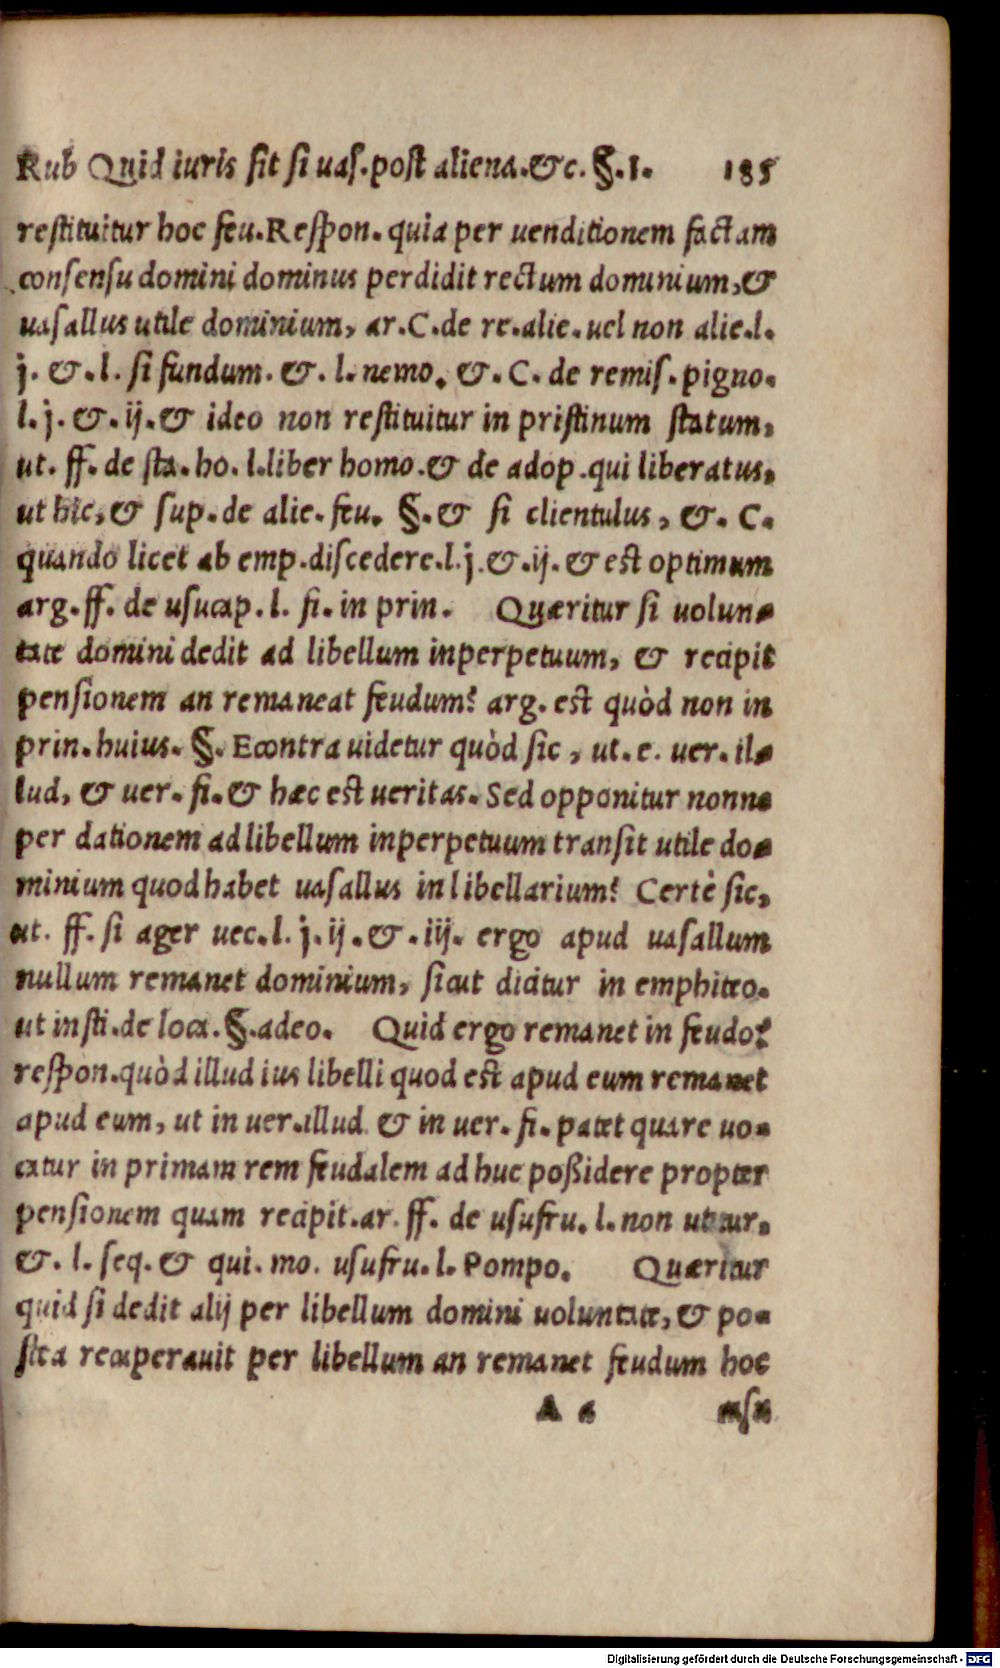 Rub Quid iuris sit si uas.post aliena.&c. §.I. 185
restituitur hoc feu.Respon. quia per uenditionem factam
consensu domini dominus perdidit rectum dominium,&
uasallus utile dominium, ar.C.de re.alie.uel non alie.l.
j. &.l. si fundum. &. l. nemo. &. C. de remis.pigno.
l. j. &. ij.& ideo non restituitur in pristinum statum,
ut. ff. de sta. ho. l.liber homo.& de adop .qui liberatus,
ut hic,& sup.de alie.feu. §.& si clientulus, &. C.
quando licet ab emp.discedere.l.j.&.ij. & est optimum
arg.ff. de usucap.l. fi. in prin. Quæritur si uolun-
tate domini dedit ad libellum inperpetuum, & recipit
pensionem an remaneat feudum? arg. est quòd non in
prin.huius. §. Econtra uidetur quòd sic, ut.e. uer.il-
lud, & uer. fi.& hæc est ueritas. Sed opponitur nonne
per dationem ad libellum inperpetuum transit utile do-
minium quod habet uasallus in libellarium? Certè sic,
ut. ff. si ager uec.l. j. ij.&.iij. ergo apud uasallum
nullum remanet dominium, sicut dicitur in emphiteo.
ut insti.de loca.§.adeo. Quid ergo remanet in feudo?
respon.quòd illud ius libelli quod est apud eum remanet
apud eum, ut in uer.illud & in uer. fi.patet quare uo-
catur in primam rem feudalem ad huc poßidere propter
pensionem quam recipit.ar. ff. de usufru. l. non utitur.
&. l. seq. & qui. mo. usufru.l. Pompo. Quæritur
quid si dedit alij per libellum domini uoluntate, & po-
stea recuperauit per libellum an remanet feudum hoc
A a usu